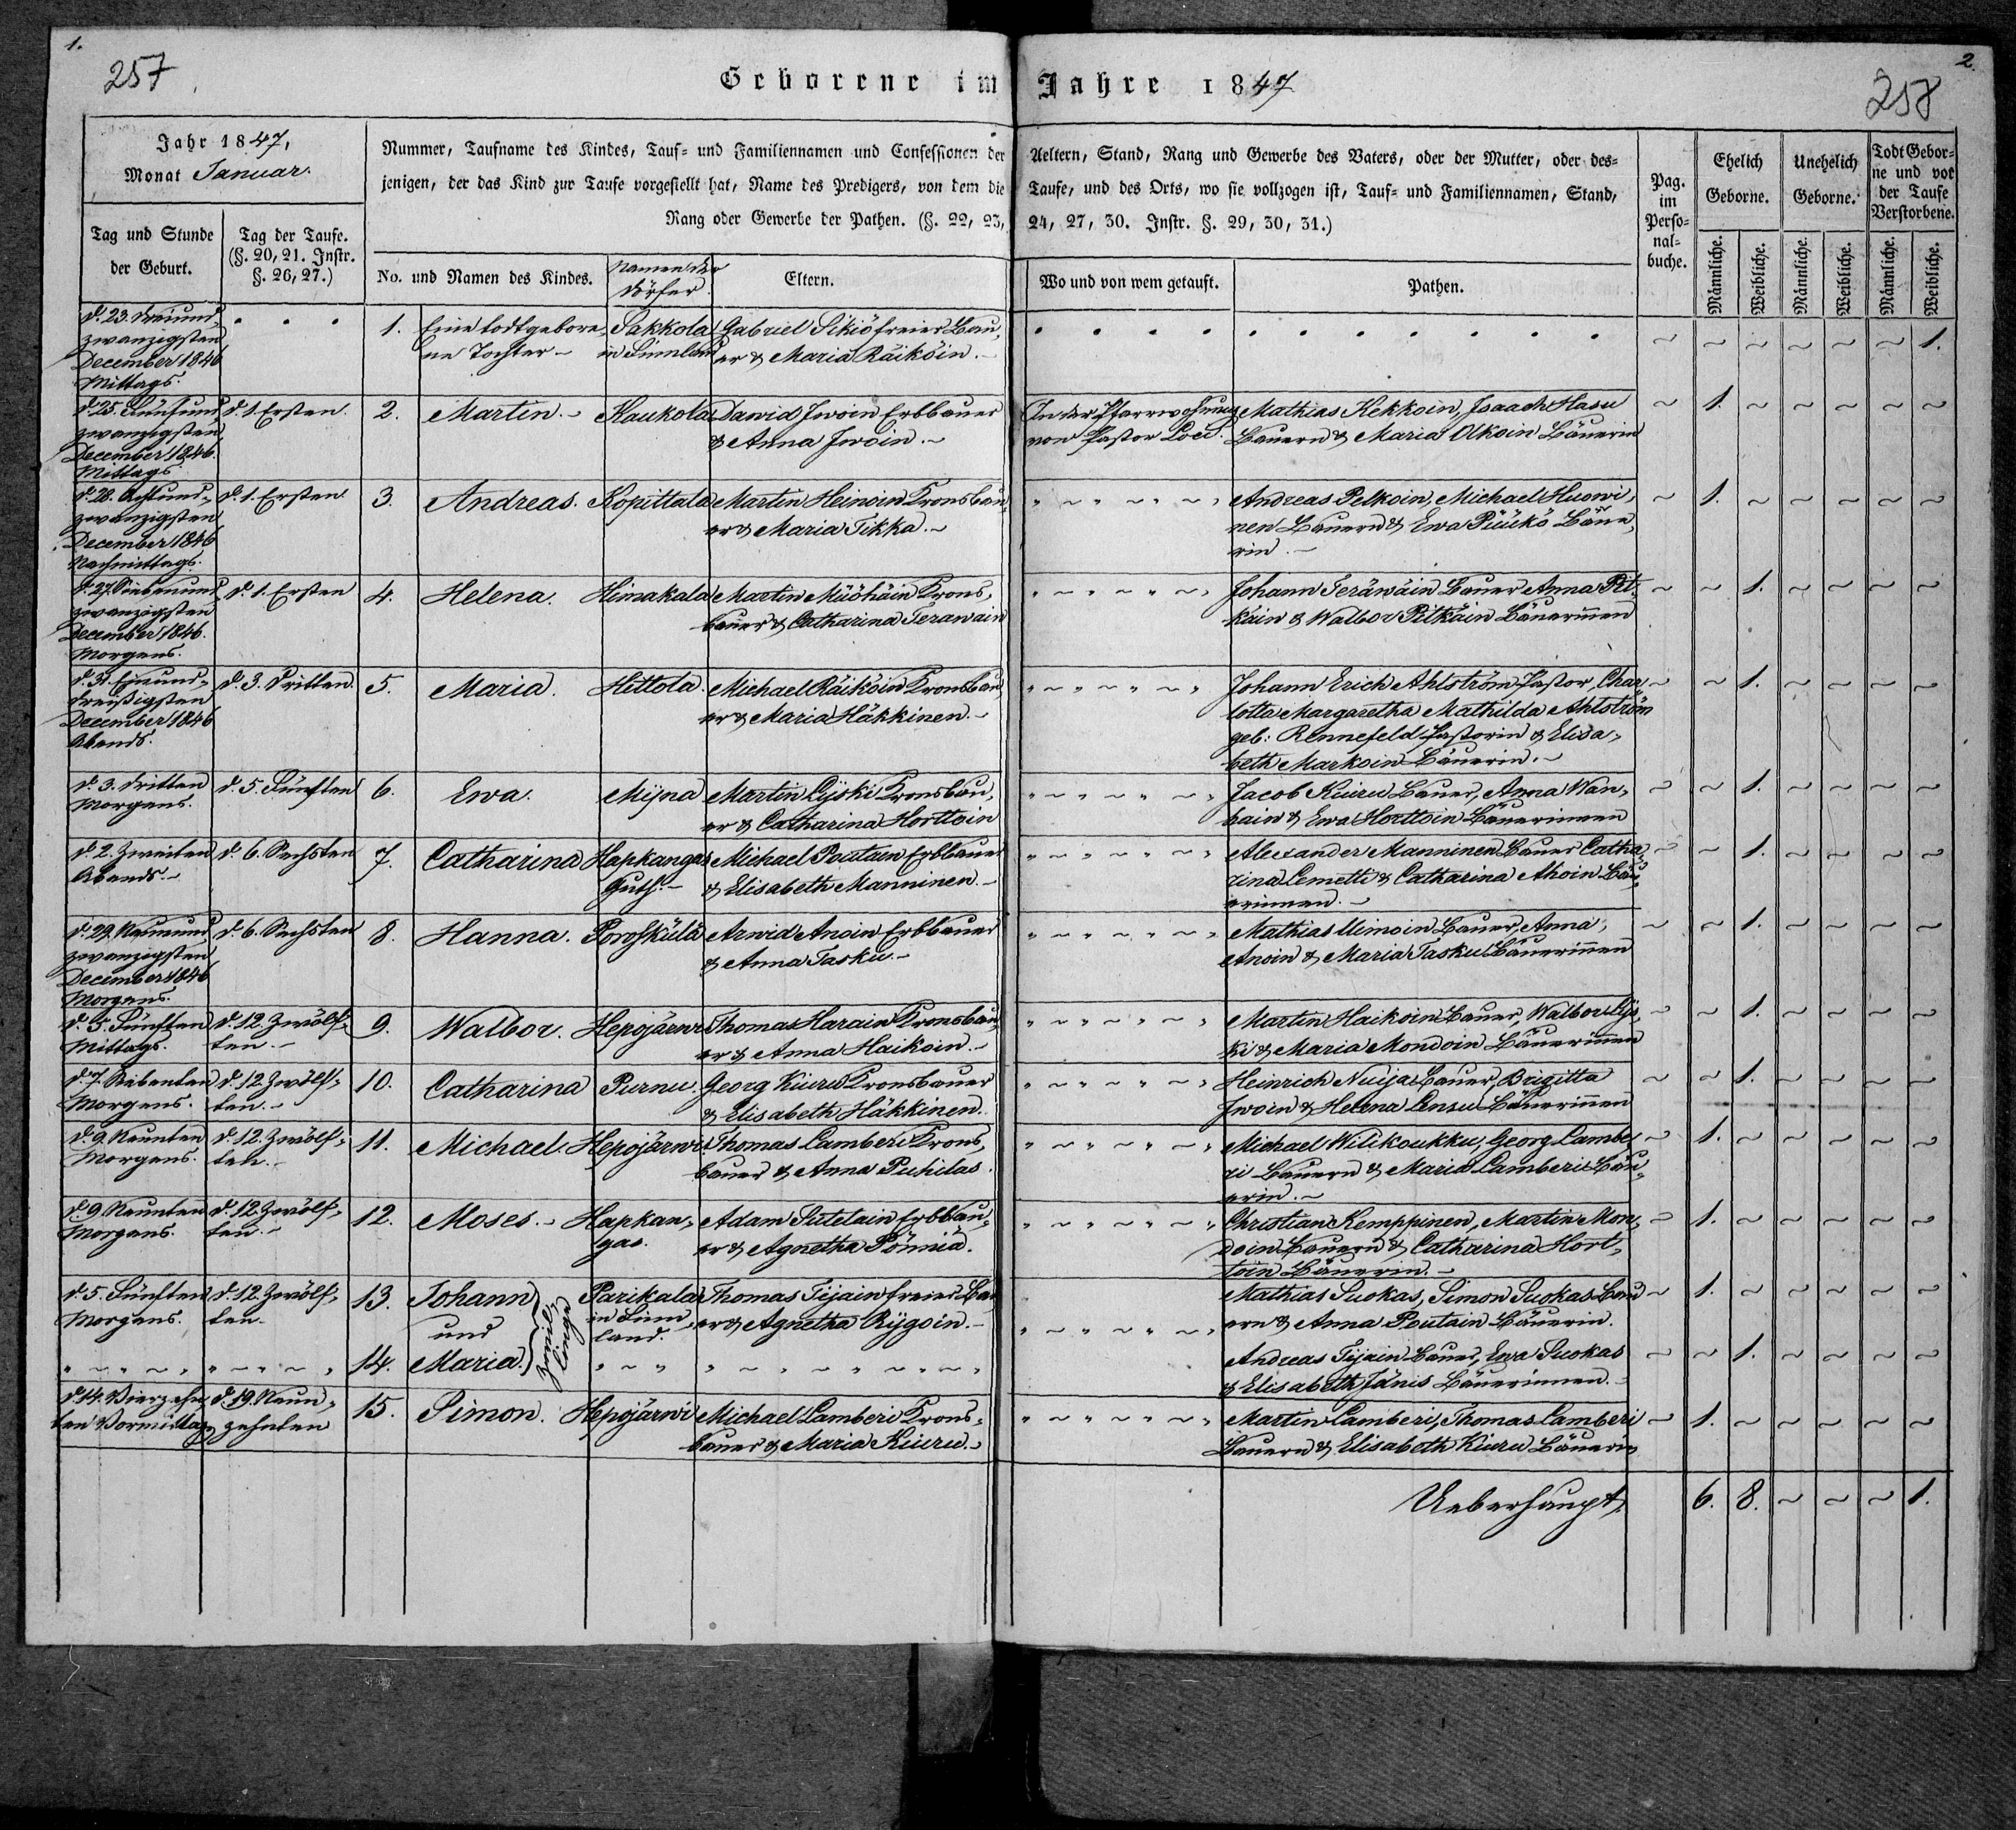 1.
2.
257
258
Geborene im Jahre 1847
Jahr 1847,
Monat Januar.
Nummer, Taufname des Kindes, Tauf- und Familiennamen und Confessionen der Aeltern, Stand, Rang und Gewerbe des Vaters, oder der Mutter, oder des-
jenigen, der das Kind zur Taufe vorgestellt hat, Name des Predigers, von dem die Taufe, und des Orts, wo sie vollzogen ist, Tauf- und Familiennamen, Stand,
Rang oder Gewerbe der Pathen. (§. 22, 23, 24, 27, 30. Instr. §. 29, 30, 31.)
Pag.
im
Perso-
nal-
buche.
Ehelich
Geborne.
Unehelich
Geborne.
Todt Gebor-
ne und vor
der Taufe
Verstorbene.
Tag und Stunde
der Geburt.
Tag der Taufe.
(§. 20, 21. Instr.
§. 26, 27.)
No. und Namen des Kindes.
Namen der
Dörfer
Eltern.
Wo und von wem getauft.
Pathen.
Männliche. Weibliche. Männliche. Weibliche. Männliche. Weibliche.
d. 23. Dreiund-
zwanzigsten
December 1846
Mittags.
1. Eine todtgebore-
ne Tochter –
Sakkola
in Finnland
Gabriel Sikiö freier Bau-
er & Maria Räiköin. –
1.
d. 25. Fünfund
zwanzigsten
December 1846.
Mittags
d. 1. Ersten.
2. Martin. –
Kaukola
Dawid Iwoin Erbbauer
& Anna Iwoin. –
In der Pfarrwohnung
von Pastor Loci.
Mathias Kekkoin, Isaach Hasu
Bauern & Maria Olkoin Bäuerin
1.
d. 28. Achtund-
zwanzigsten
December 1846
Nachmittags.
d. 1. Ersten
3. Andreas.
Kopittala
Martin Heinoin Kronsbau-
er & Maria Tikka. –
Andreas Pelkoin, Michael Huowi-
nen Bauern & Ewa Püükö Bäue-
rin. –
1.
d. 27. Siebenund
zwanzigsten
December 1846.
Morgens.
d. 1. Ersten
4. Helena.
Himakala
Martin Müöhäin Krons-
bauer & Catharina Terawain
Johann Teräwäin Bauer Anna Pit-
käin & Walbor Pitkäin Bäuerinnen
1.
d. 31. Einund-
dreißigsten
December 1846
Abends.
d. 3. Dritten.
5. Maria.
Hittola.
Michael Räiköin Kronsbau-
er & Maria Häkkinen. –
Johann Erich Ahlström Pastor, Char-
lotta Margaretha Mathilda Ahlström
geb: Rennefeld Pastorin & Elisa-
beth Markoin Bäuerin. –
1.
d. 3. Dritten
Morgens.
d. 5. Fünften
6. Ewa.
Mijna
Martin Lyski Kronsbau-
er & Catharina Horttoin
Jacob Kuiru Bauer, Anna Wan-
hain & Ewa Horttoin Bäuerinnen
1.
d. 2. Zweiten
Abends. –
d. 6. Sechsten
7. Catharina
Hapkangas
Guth. –
Michael Poutain Erbbauer
& Elisabeth Manninen. –
Alexander Manninen Bauer Catha-
rina Lemetti & Catharina Ahoin Bäu-
erinnen. –
1.
d. 29. Neunund
zwanzigsten
December 1846
Morgens.
d. 6. Sechsten
8. Hanna.
Poroskülä
Arwid Anoin Erbbauer
& Anna Tasku. –
Mathias Mimoin Bauer, Anna
Anoin & Maria Tasku Bäuerinnen
1.
d. 5. Fünften
Mittags.
d. 12. Zwölf-
ten. –
9. Walbor.
Hepojärwi
Thomas Harain Kronsbau-
er & Anna Haikoin. –
Martin Haikoin Bauer, Walbor Lys-
ki & Maria Mondoin Bäuerinnen
1.
d. 7. Siebenten
Morgens.
d. 12. Zwölf-
ten. –
10. Catharina
Purnu.
Georg Kiuru Kronsbauer
& Elisabeth Häkkinen.
Heinrich Nuija Bauer, Brigitta
Iwoin & Helena Lensu Bäuerinnen
1.
d. 9. Neunten
Morgens.
d. 12. Zwölf-
ten. –
11. Michael.
Hepojärwi
Thomas Lamberi Krons-
bauer & Anna Puhilas.
Michael Wilikoukku, Georg Lambe-
ri Bauern & Maria Lamberi Bäu-
erin. –
1.
d. 9. Neunten
Morgens.
d. 12. Zwölf-
ten. –
12. Moses. –
Hapkan-
gas.
Adam Sutelain Erbbau-
er & Agnetha Pönniä.
Christian Kemppinen, Martin Mon-
doin Bauern & Catharina Hort-
toin Bäuerin. –
1.
d. 5. Fünften
Morgens.
d. 12. Zwölf-
ten.
13. Johann
und
Zwil-
linge
Parikala
in Finn-
land.
Thomas Tijain freier Bau
er & Agnetha Rygoin. –
Mathias Suokas, Simon Suokas Bau
ern & Anna Poutain Bäuerin.
1.
14. Maria.
Andreas Tijain Bauer, Ewa Suokas
& Elisabeth Jänis Bäuerinnen. –
1.
d. 14. Vierzehn-
ten Vormittag
d. 19. Neun-
zehnten
15. Simon.
Hepojärwi
Michael Lamberi Krons-
bauer & Maria Kiuru. –
Martin Lamberi, Thomas Lamberi
Bauern & Elisabeth Kiuru Bäuerin
1.
Ueberhaupt.
6. 8. 1.